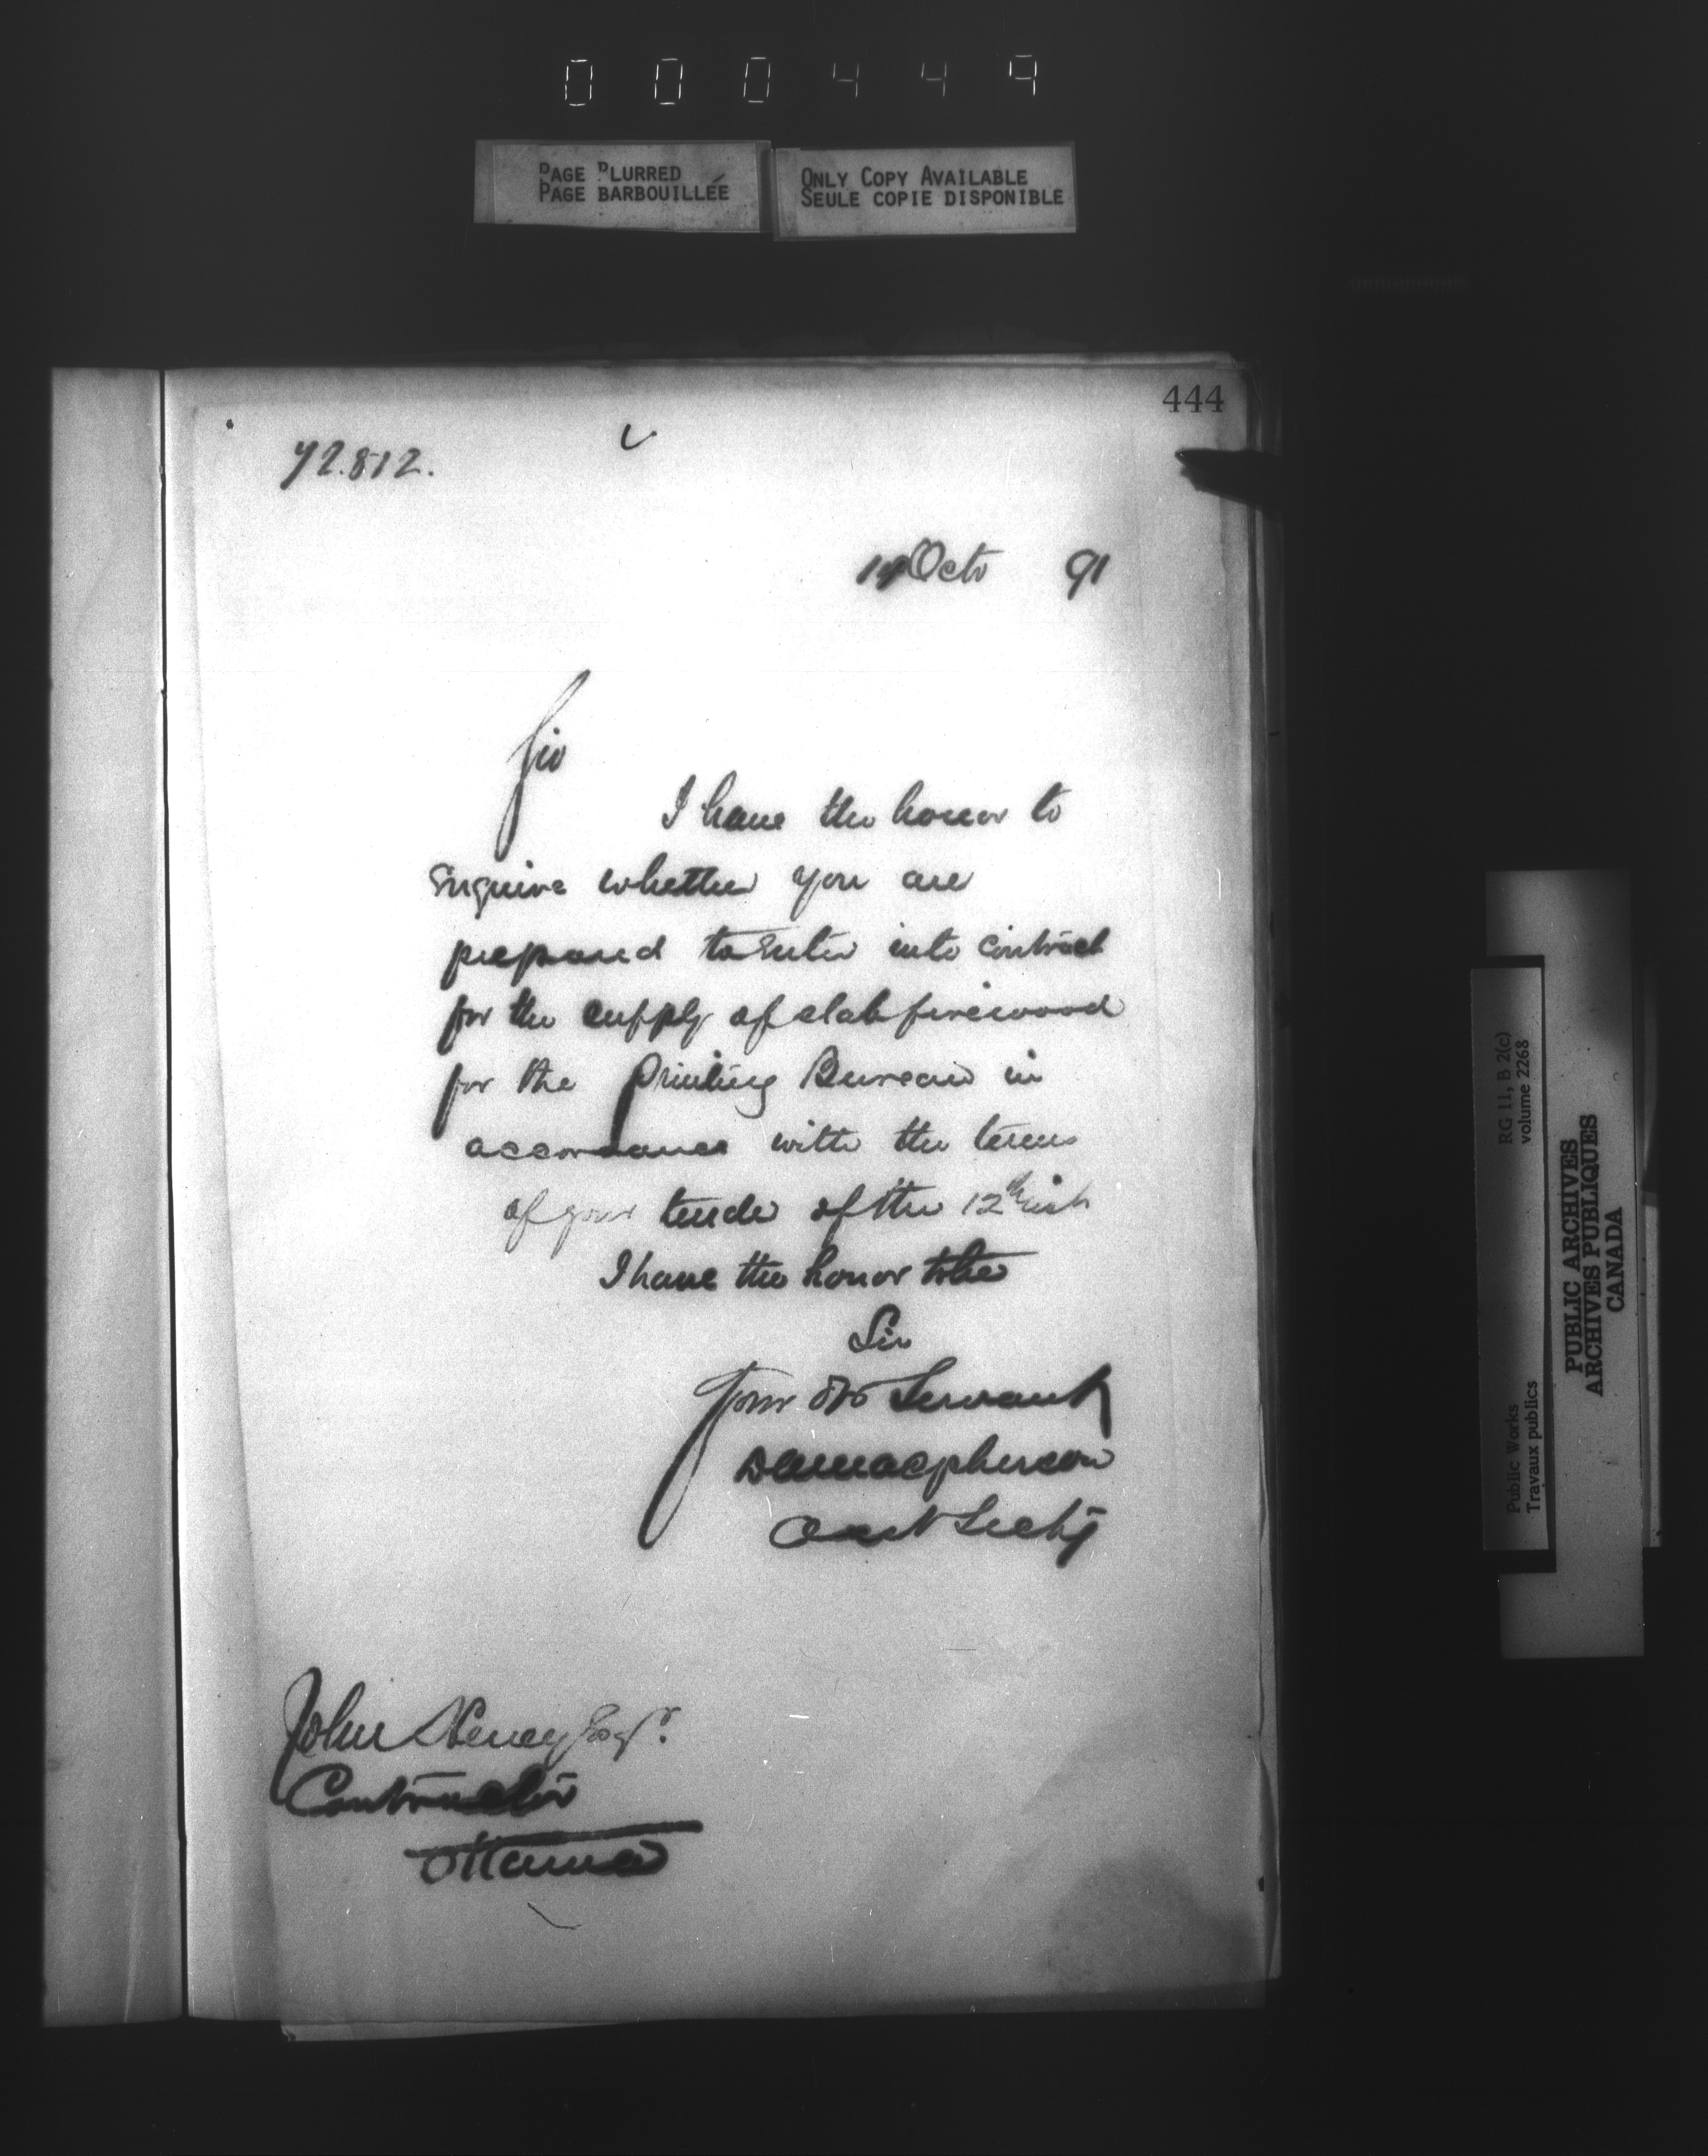 000449
PAGE BLURRED
PAGE BARBOUILLÉE
ONLY COPY AVAILABLE
SEULE COPIE DISPONIBLE
444
72.812.
Octr 91
Sir
I have the honor to
enquire whether you are
prepared to enter into contract
for the supply of slab firewood
for the Printing Bureau in
accordance with the terms
of your tender of the 12th inst
I have the honor to be
Sir
Your Ob Servant
D A Macpherson
Asst Secty
John Heney Esqr.
Contractor
Ottawa
RG 11, B 2(c)
volume 2268
Public Works
Travaux publics
PUBLIC ARCHIVES
ARCHIVES PUBLIQUES
CANADA